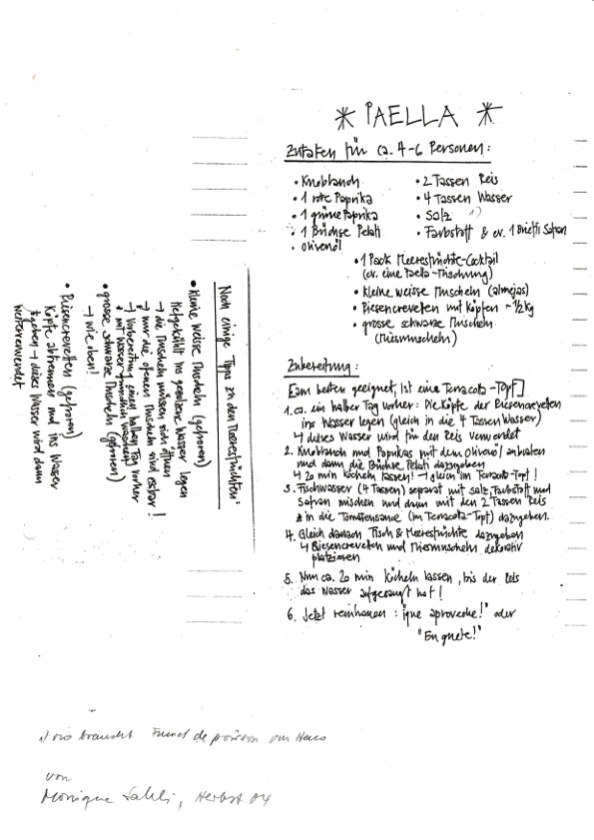 * PAELLA *
Zutaten für ca. 4-6 Personen:
• Knoblauch
• 1 rote Paprika
• 1 grüne Paprika
• 1 Büchse Pelati
• Olivenöl
• 2 Tassen Reis
• 4 Tassen Wasser
• Salz 1)
• Farbstoff & ev. 1 Briefli Safran
• 1 Pack Meeresfrüchte-Cocktail
(ev. eine Paella-Mischung)
• kleine weisse Muscheln (almejas)
• Riesencreveten mit Köpfen ~ 1/2 kg
• grosse schwarze Muscheln
(Miesmuscheln)
Zubereitung:
[am besten geeignet, ist eine Terracota-Topf]
1. ca. ein halber Tag vorher: Die Köpfe der Riesencreveten
ins Wasser legen (gleich in die 4 Tassen Wasser)
↳ dieses Wasser wird für den Reis verwendet
2. Knoblauch und Paprikas mit dem Olivenöl anbraten
und dann die Büchse Pelati dazugeben
↳ 20 min köcheln lassen! → gleich im Terracota-Topf!
3. Fischwasser (4 Tassen) separat mit Salz, Farbstoff und
Safran mischen und dann mit den 2 Tassen Reis
in die Tomatensauce (im Terracota-Topf) dazugeben.
4. Gleich danach Fisch & Meeresfrüchte dazugeben
↳ Riesencreveten und Miesmuscheln dekorativ
platzieren
5. Nun ca. 20 min köcheln lassen, bis der Reis
das Wasser aufgesaugt hat!
6. Jetzt reinhauen: "que aproveche!" oder
"En guete!"
Noch einige Tipps zu den Meeresfrüchten:
• kleine weisse Muscheln (gefroren)
tiefgekühlt ins gesalzene Wasser legen
→ die Muscheln müssen sich öffnen
→ nur die offenen Muscheln sind essbar!
→ Vorbereitung einen halben Tag vorher
• grosse schwarze Muscheln (gefroren)
→ wie oben!
• Riesencreveten (gefroren)
Köpfe abtrennen und ins Wasser
geben → dieses Wasser wird dann
weiterverwendet
1) braucht Fumet de poisson
von
Monique Sahli, Herbst 04